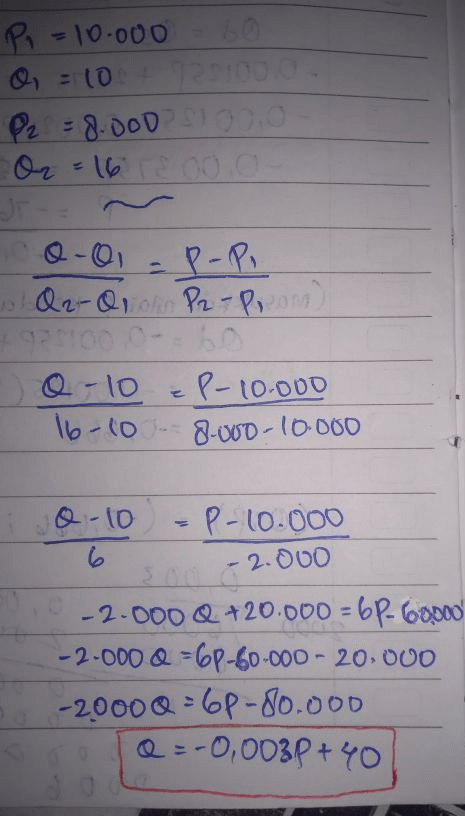 P₁ = 10.000
Q₁ = 10
P₂ = 8.000
Q₂ = 16
Q - Q₁ / Q₂ - Q₁ = P - P₁ / P₂ - P₁
Q - 10 / 16 - 10 = P - 10.000 / 8.000 - 10.000
Q - 10 / 6 = P - 10.000 / - 2.000
-2.000Q + 20.000 = 6P - 60.000
-2.000Q = 6P - 60.000 - 20.000
-2.000Q = 6P - 80.000
Q = -0,003P + 40